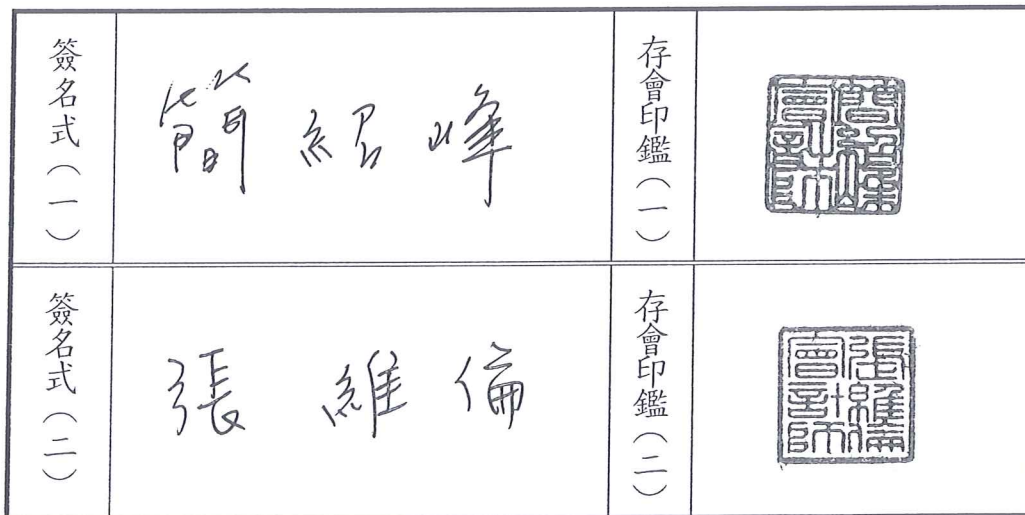 簽名式（一） 簡紹峰 存會印鑑（一） 簡紹峰會計師
簽名式（二） 張維倫 存會印鑑（二） 張維倫會計師